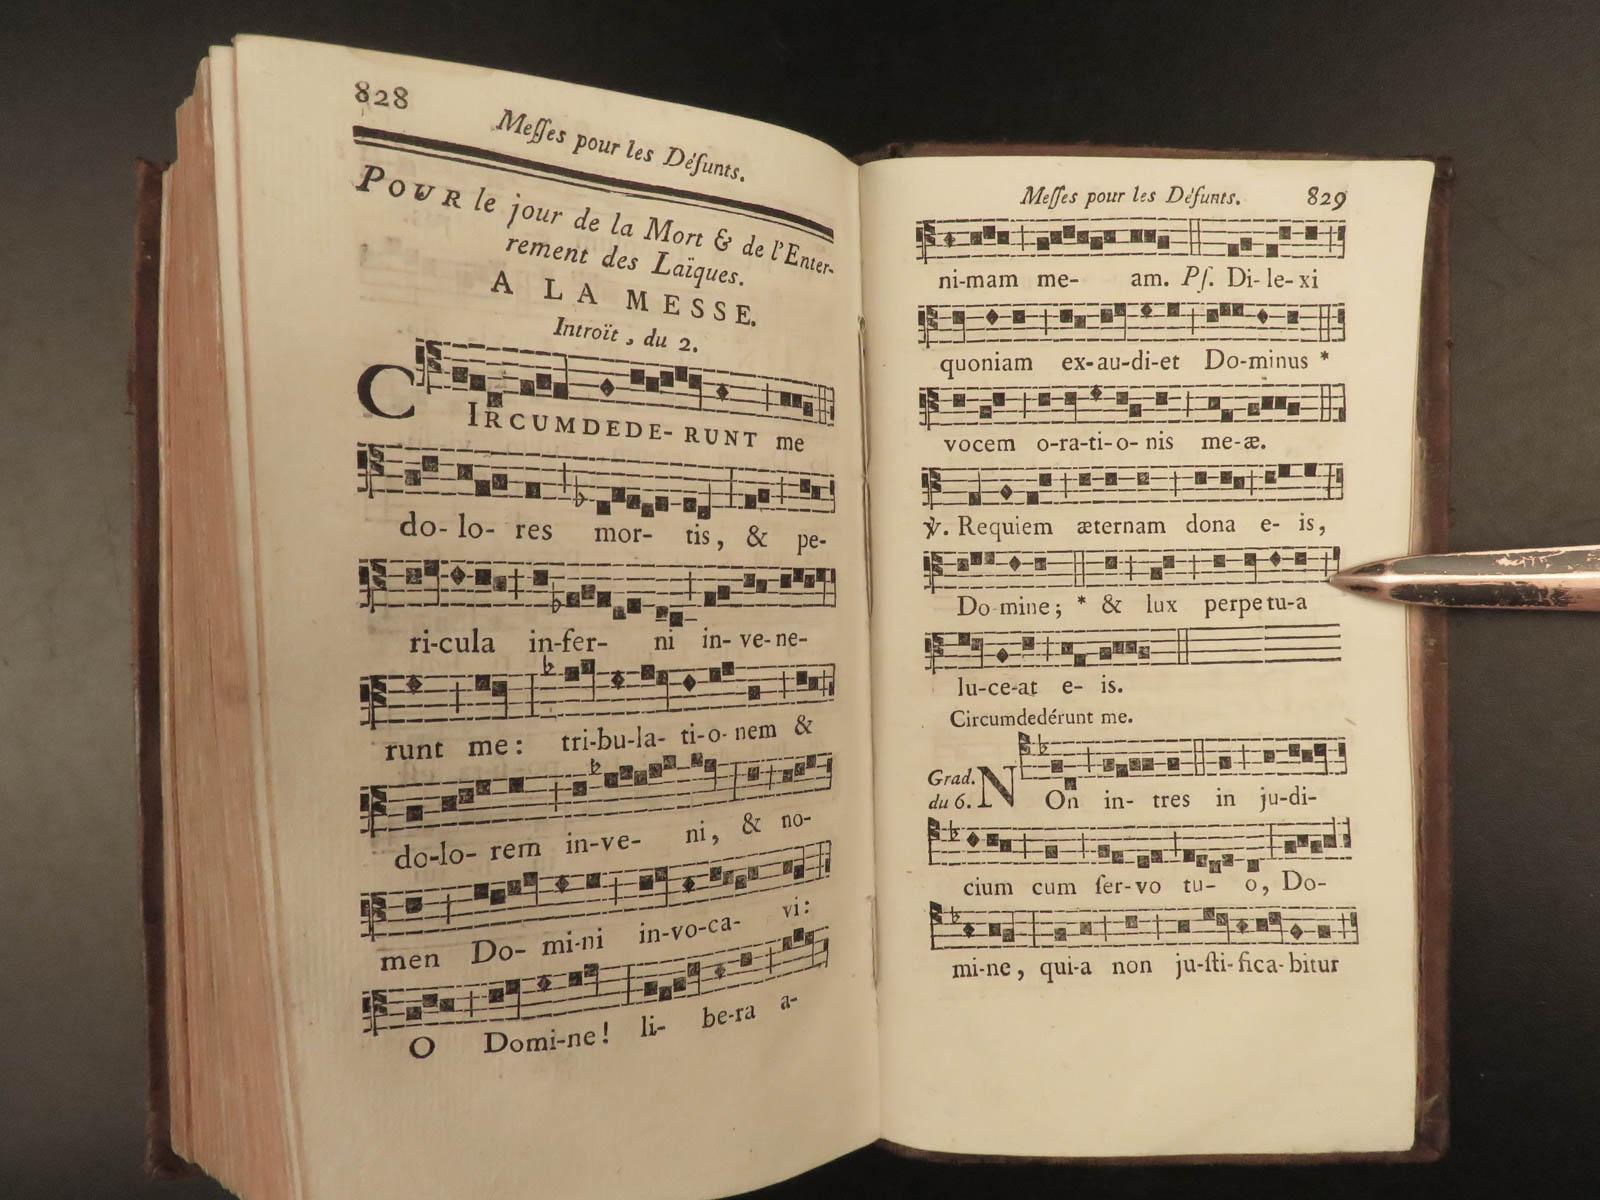 828
Meſſes pour les Défunts.
POUR le jour de la Mort & de l'Enter-
rement des Laïques.
A LA MESSE.
Introït, du 2.
CIRCUMDEDE- RUNT me
do- lo- res mor- tis, & pe-
ri-cula in-fer- ni in- ve-ne-
runt me: tri-bu-la- ti-o- nem &
do-lo- rem in-ve- ni, & no-
men Do- mi-ni in-vo-ca- vi:
O Domi-ne! li- be-ra a-
Meſſes pour les Défunts. 829
ni-mam me- am. Pſ. Di-le-xi
quoniam ex-au-di-et Do-minus *
vocem o-ra-ti-o-nis me-æ.
℣. Requiem æternam dona e- is,
Do-mine; * & lux perpetu-a
lu-ce-at e- is.
Circumdedérunt me.
Grad. du 6. NOn in- tres in ju-di-
cium cum ſer-vo tu- o, Do-
mi-ne, qui-a non ju-ſti-fica-bitur